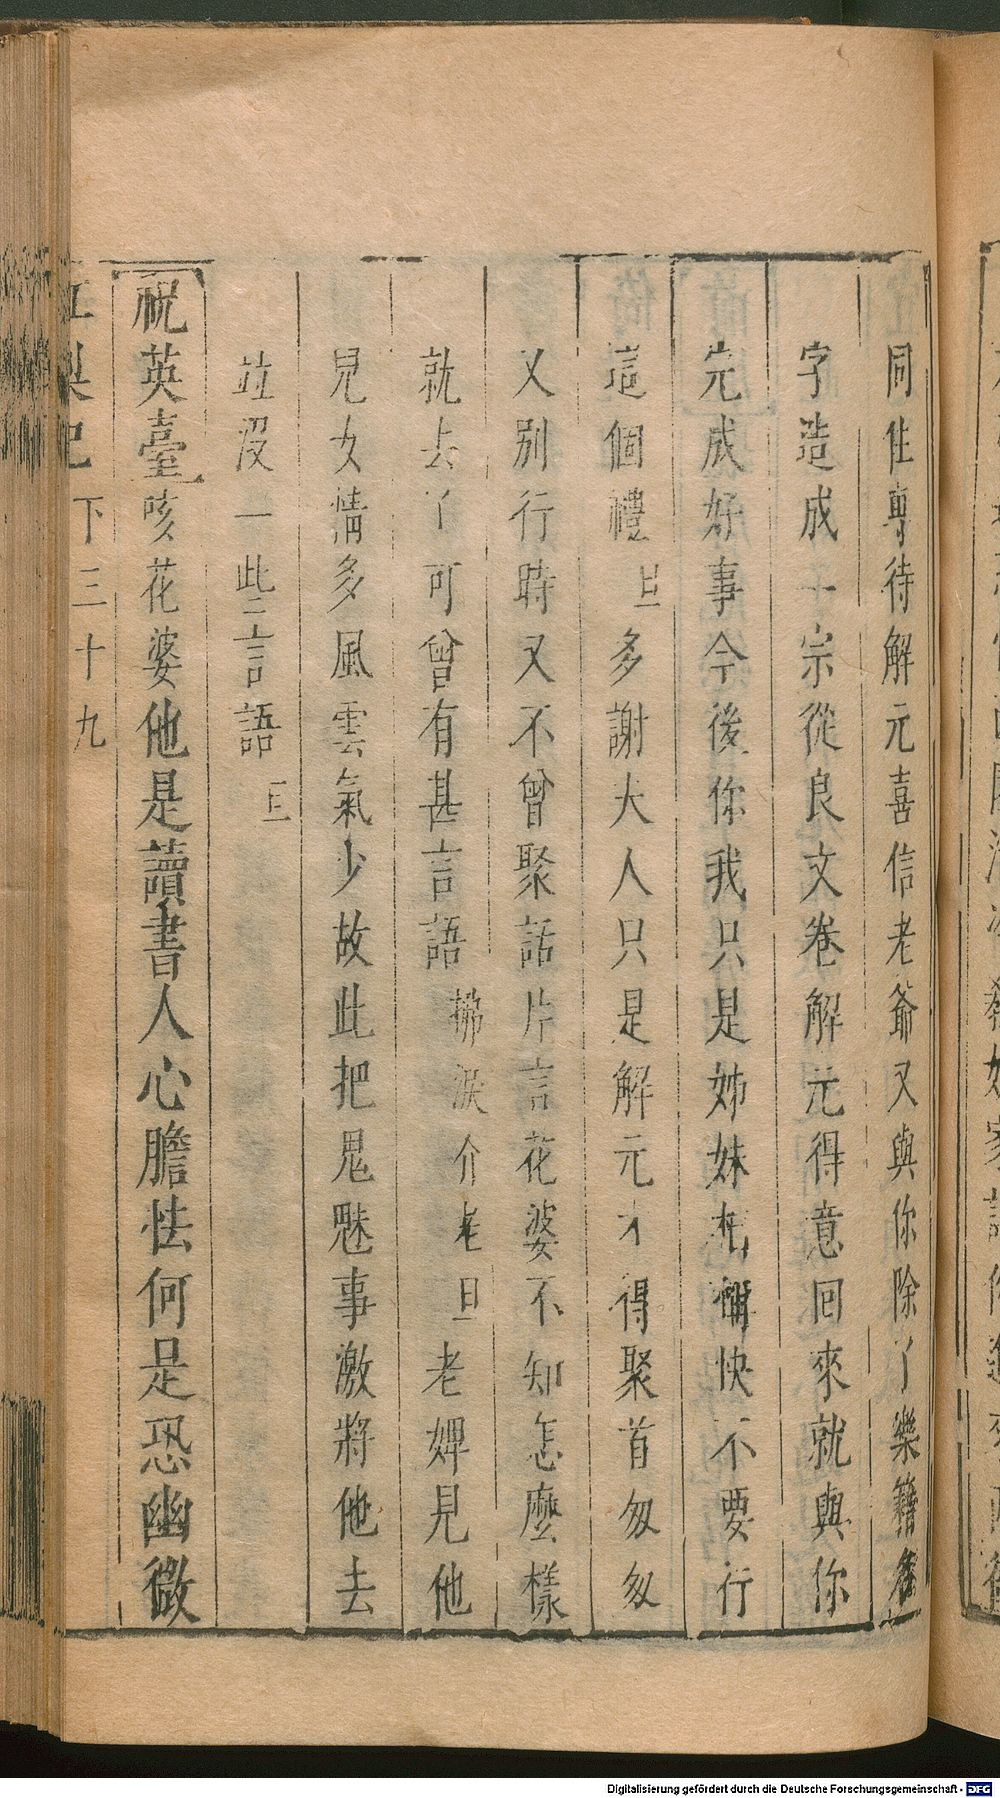 同住專待解元喜信老爺又與你除了樂籍名
字造成一宗從良文卷解元得意回來就與你
完成好事今後你我只是姊妹相稱快不要行
這個禮旦多謝大人只是解元才得聚首匆匆
又別行時又不曾聚話片言花婆不知怎麼樣
就去了可曾有甚言語拂淚介老旦老婢見他
兒女情多風雲氣少故此把鬼魅事激將他去
並沒一些言語旦
祝英臺咳花婆他是讀書人心膽怯何是恐幽微
紅梨記下三十九
Digitalisierung gefördert durch die Deutsche Forschungsgemeinschaft - DFG